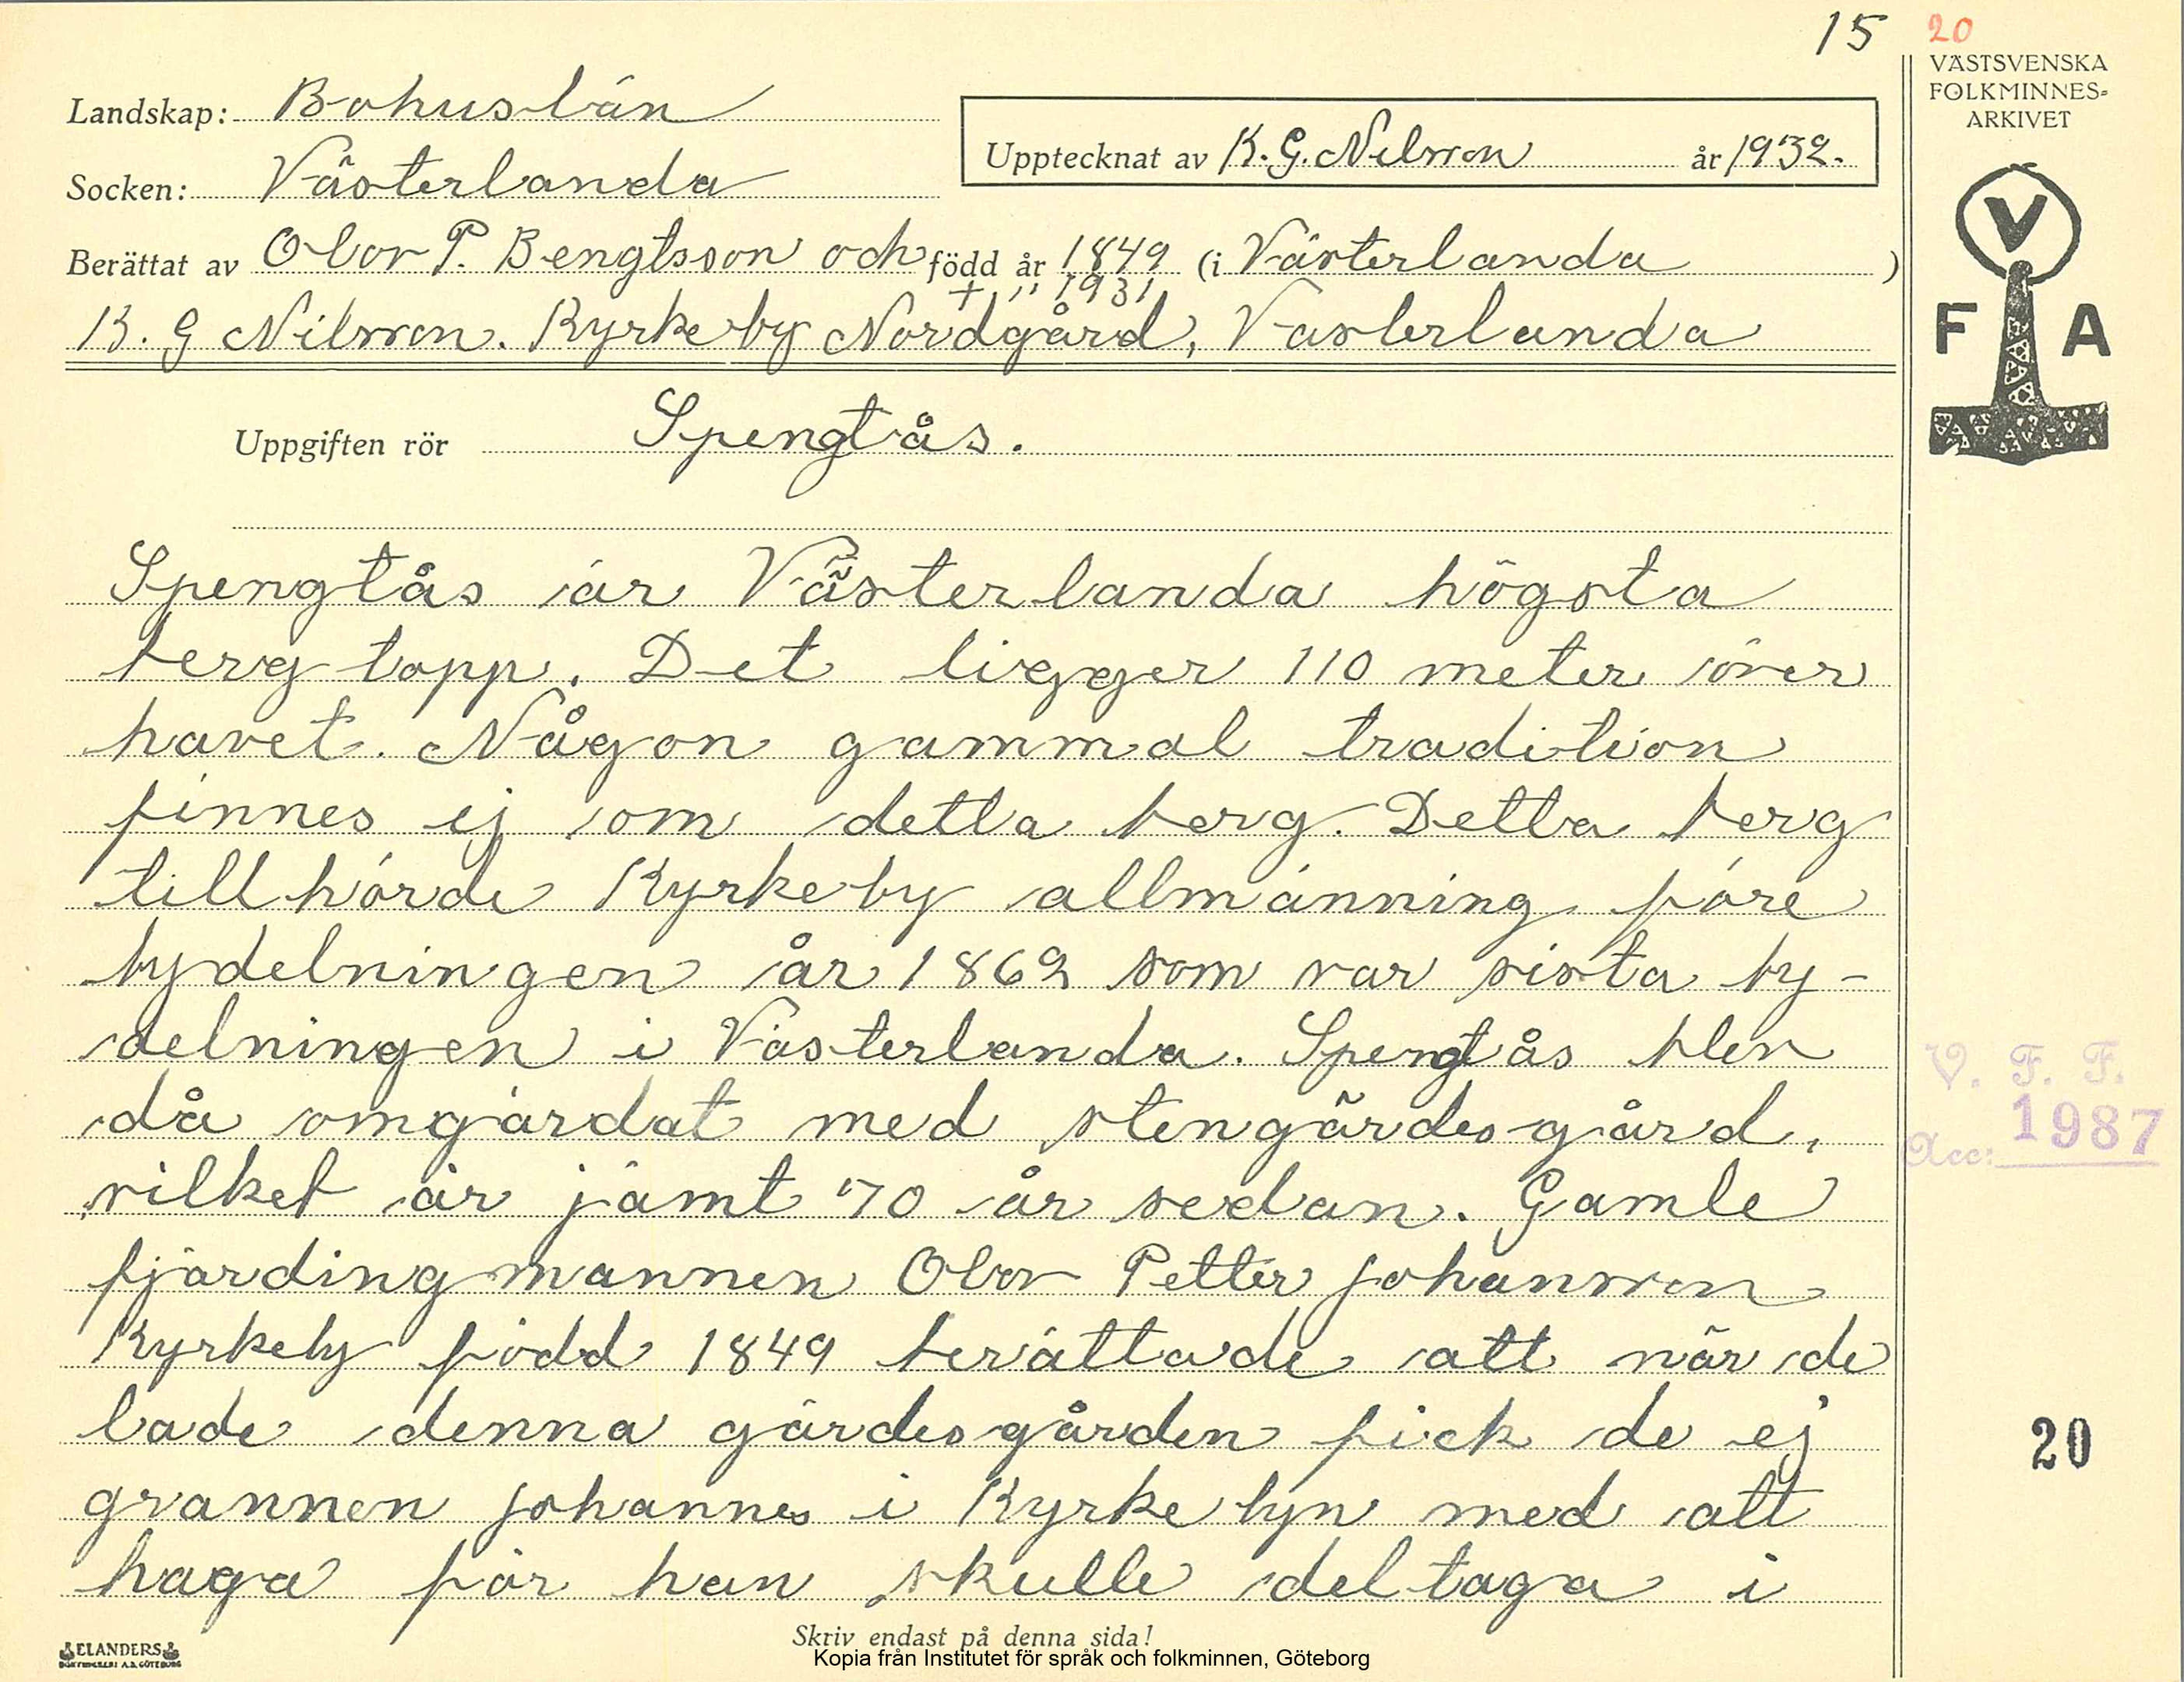 15 20
VÄSTSVENSKA
FOLKMINNES-
ARKIVET
Landskap: Bohuslän
Upptecknat av K. G. Nilsson år 1932.
Socken: Västerlanda
Berättat av Olor P. Bengtsson och född år 1849 (i Västerlanda )
+ " 1931
K. G Nilsson. Kyrkeby Nordgård, Västerlanda
V
F A
Uppgiften rör Spengtås.
Spengtås är Västerlanda högsta
berg topp. Det ligger 110 meter över
havet. Någon gammal tradition
finnes ej om detta berg. Detta berg
tillhörde Kyrkeby allmänning före
bydelningen år 1862 som var sista by-
delningen i Västerlanda. Spengtås blev
då omgärdat med stengärdesgård,
vilket är jämt 70 år sedan. Gamle
fjärdingmannen Olor Petter Johansson
Kyrkeby född 1849 berättade att när de
lade denna gärdesgården fick de ej
grannen Johannes i Kyrkebyn med att
haga för han skulle deltaga i
V. F. F.
Acc: 1987
20
Skriv endast på denna sida!
ELANDERS
BOKTRYCKERI A.B. GÖTEBORG
Kopia från Institutet för språk och folkminnen, Göteborg